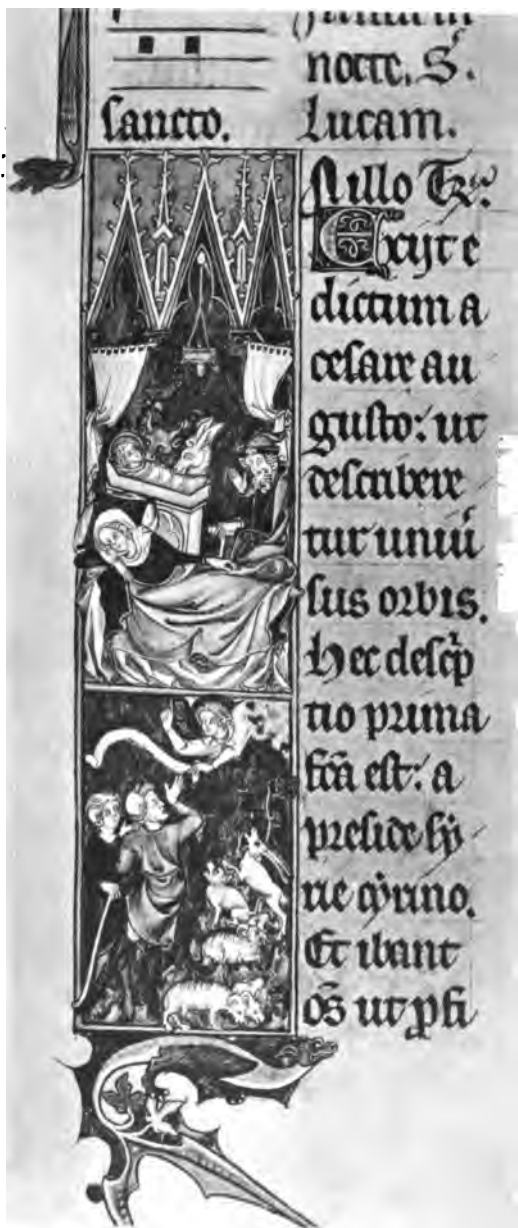 sancto.
nocte. S.
Lucam.
N illo t̄.
Exijt e
dictum a
cesare au
gusto: ut
describere
tur uniu͛
sus orbis.
Hec desc̄p
tio prima
fc̄a est: a
preside sẏ
rie cẏrino.
Et ibant
om̄s ut ꝓfi